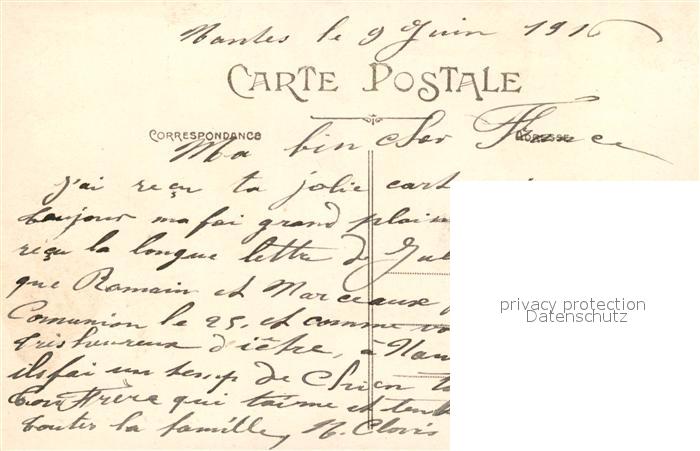 Nantes le 9 Juin 1916
CARTE POSTALE
CORRESPONDANCE
ADRESSE
Ma bin cher
J'ai reçu ta jolie cart
toujour ma fai grand plaisi
reçu la longue lettre de Jul
que Romain et Marceaux
Comunion le 25, et comme
trisheureux d'ietre, à Nan
ilsfai un temp de Chien
ton Frère qui t'aime et
toutes la famille, N. Clovis
privacy protection
Datenschutz